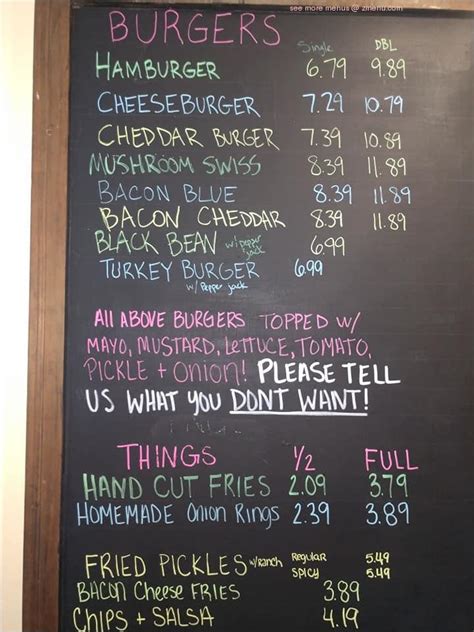 see more menus @ zmenu.com
BURGERS Single DBL
HAMBURGER 6.79 9.89
CHEESEBURGER 7.29 10.79
CHEDDAR BURGER 7.39 10.89
MUSHROOM SWISS 8.39 11.89
BACON BLUE 8.39 11.89
BACON CHEDDAR 8.39 11.89
BLACK BEAN w/ pepper jack 6.99
TURKEY BURGER 6.99
w/ Pepper jack
All ABOVE BURGERS TOPPED W/
MAYO, MUSTARD, LETTUCE, TOMATO,
PICKLE + Onion! PLEASE TELL
US WHAT YOU DONT WANT!
THINGS 1/2 FULL
HAND CUT FRIES 2.09 3.79
HOMEMADE Onion Rings 2.39 3.89
FRIED PICKLES w/Ranch Regular 5.49
SPICY 5.49
BACON CHEESE FRIES 3.89
CHIPS + SALSA 4.19